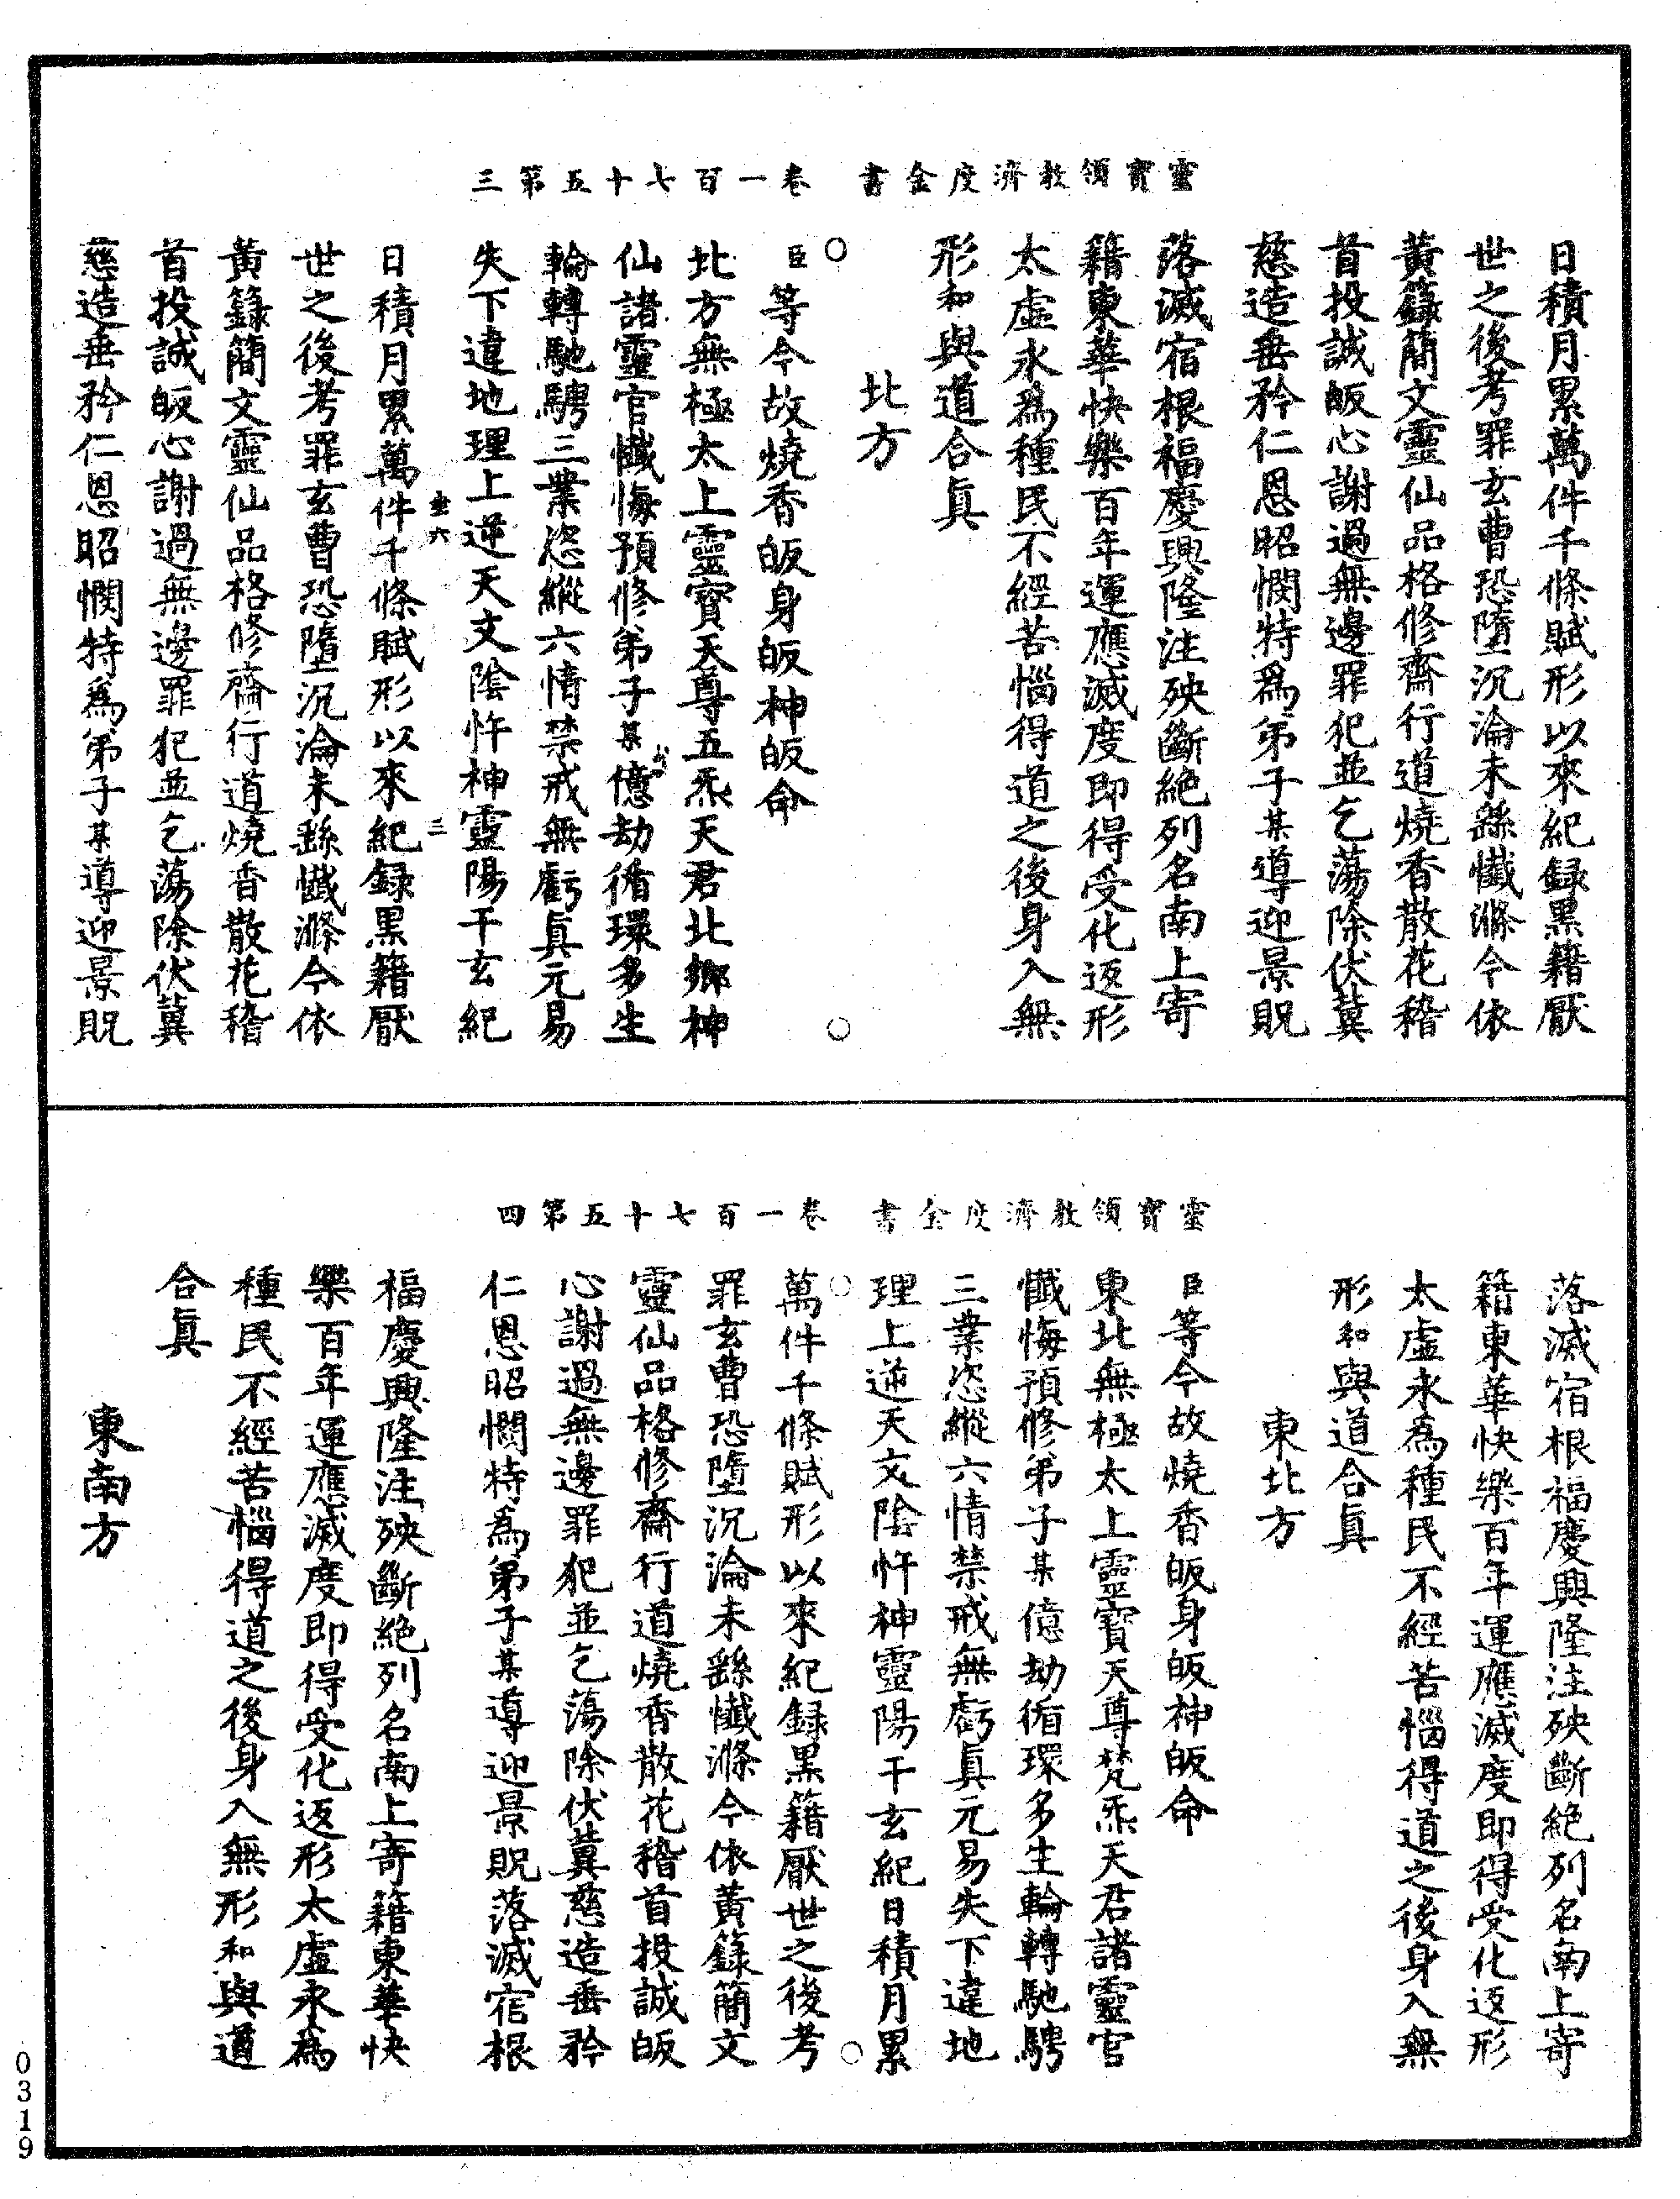 靈寶領教濟度金書 卷一百七十五第三
日積月累萬件千條賦形以來紀録黑籍厭
世之後考罪玄曹恐墮沉淪未繇懺滌今依
黃籙簡文靈仙品格修齋行道燒香散花稽
首投誠皈心謝過無邊罪犯並乞蕩除伏冀
慈造垂矜仁恩昭憫特爲弟子某導迎景貺
落滅宿根福慶興隆注殃斷絕列名南上寄
籍東華快樂百年運應滅度即得受化返形
太虛永爲種民不經苦惱得道之後身入無
形和與道合眞
北方
臣等今故燒香皈身皈神皈命
北方無極太上靈寶天尊五炁天君北鄉神
仙諸靈官懺悔預修弟子某億劫循環多生
輪轉馳騁三業恣縱六情禁戒無虧眞元易
失下違地理上逆天文陰忤神靈陽干玄紀
日積月累萬件千條賦形以來紀録黑籍厭
世之後考罪玄曹恐墮沉淪未繇懺滌今依
黃籙簡文靈仙品格修齋行道燒香散花稽
首投誠皈心謝過無邊罪犯並乞蕩除伏冀
慈造垂矜仁恩昭憫特爲弟子某導迎景貺
靈寶領教濟度金書 卷一百七十五第四
落滅宿根福慶興隆注殃斷絕列名南上寄
籍東華快樂百年運應滅度即得受化返形
太虛永為種民不經苦惱得道之後身入無
形和與道合眞
東北方
臣等今故燒香皈身皈神皈命
東北無極太上靈寶天尊梵炁天君諸靈官
懺悔預修弟子某億劫循環多生輪轉馳騁
三業恣縱六情禁戒無虧眞元易失下違地
理上逆天文陰忤神靈陽干玄紀日積月累
萬件千條賦形以來紀録黑籍厭世之後考
罪玄曹恐墮沉淪未繇懺滌今依黃籙簡文
靈仙品格修齋行道燒香散花稽首投誠皈
心謝過無邊罪犯並乞蕩除伏冀慈造垂矜
仁恩昭憫特為弟子某導迎景貺落滅宿根
福慶興隆注殃斷絕列名南上寄籍東華快
樂百年運應滅度即得受化返形太虛永為
種民不經苦惱得道之後身入無形和與道
合眞
東南方
0319